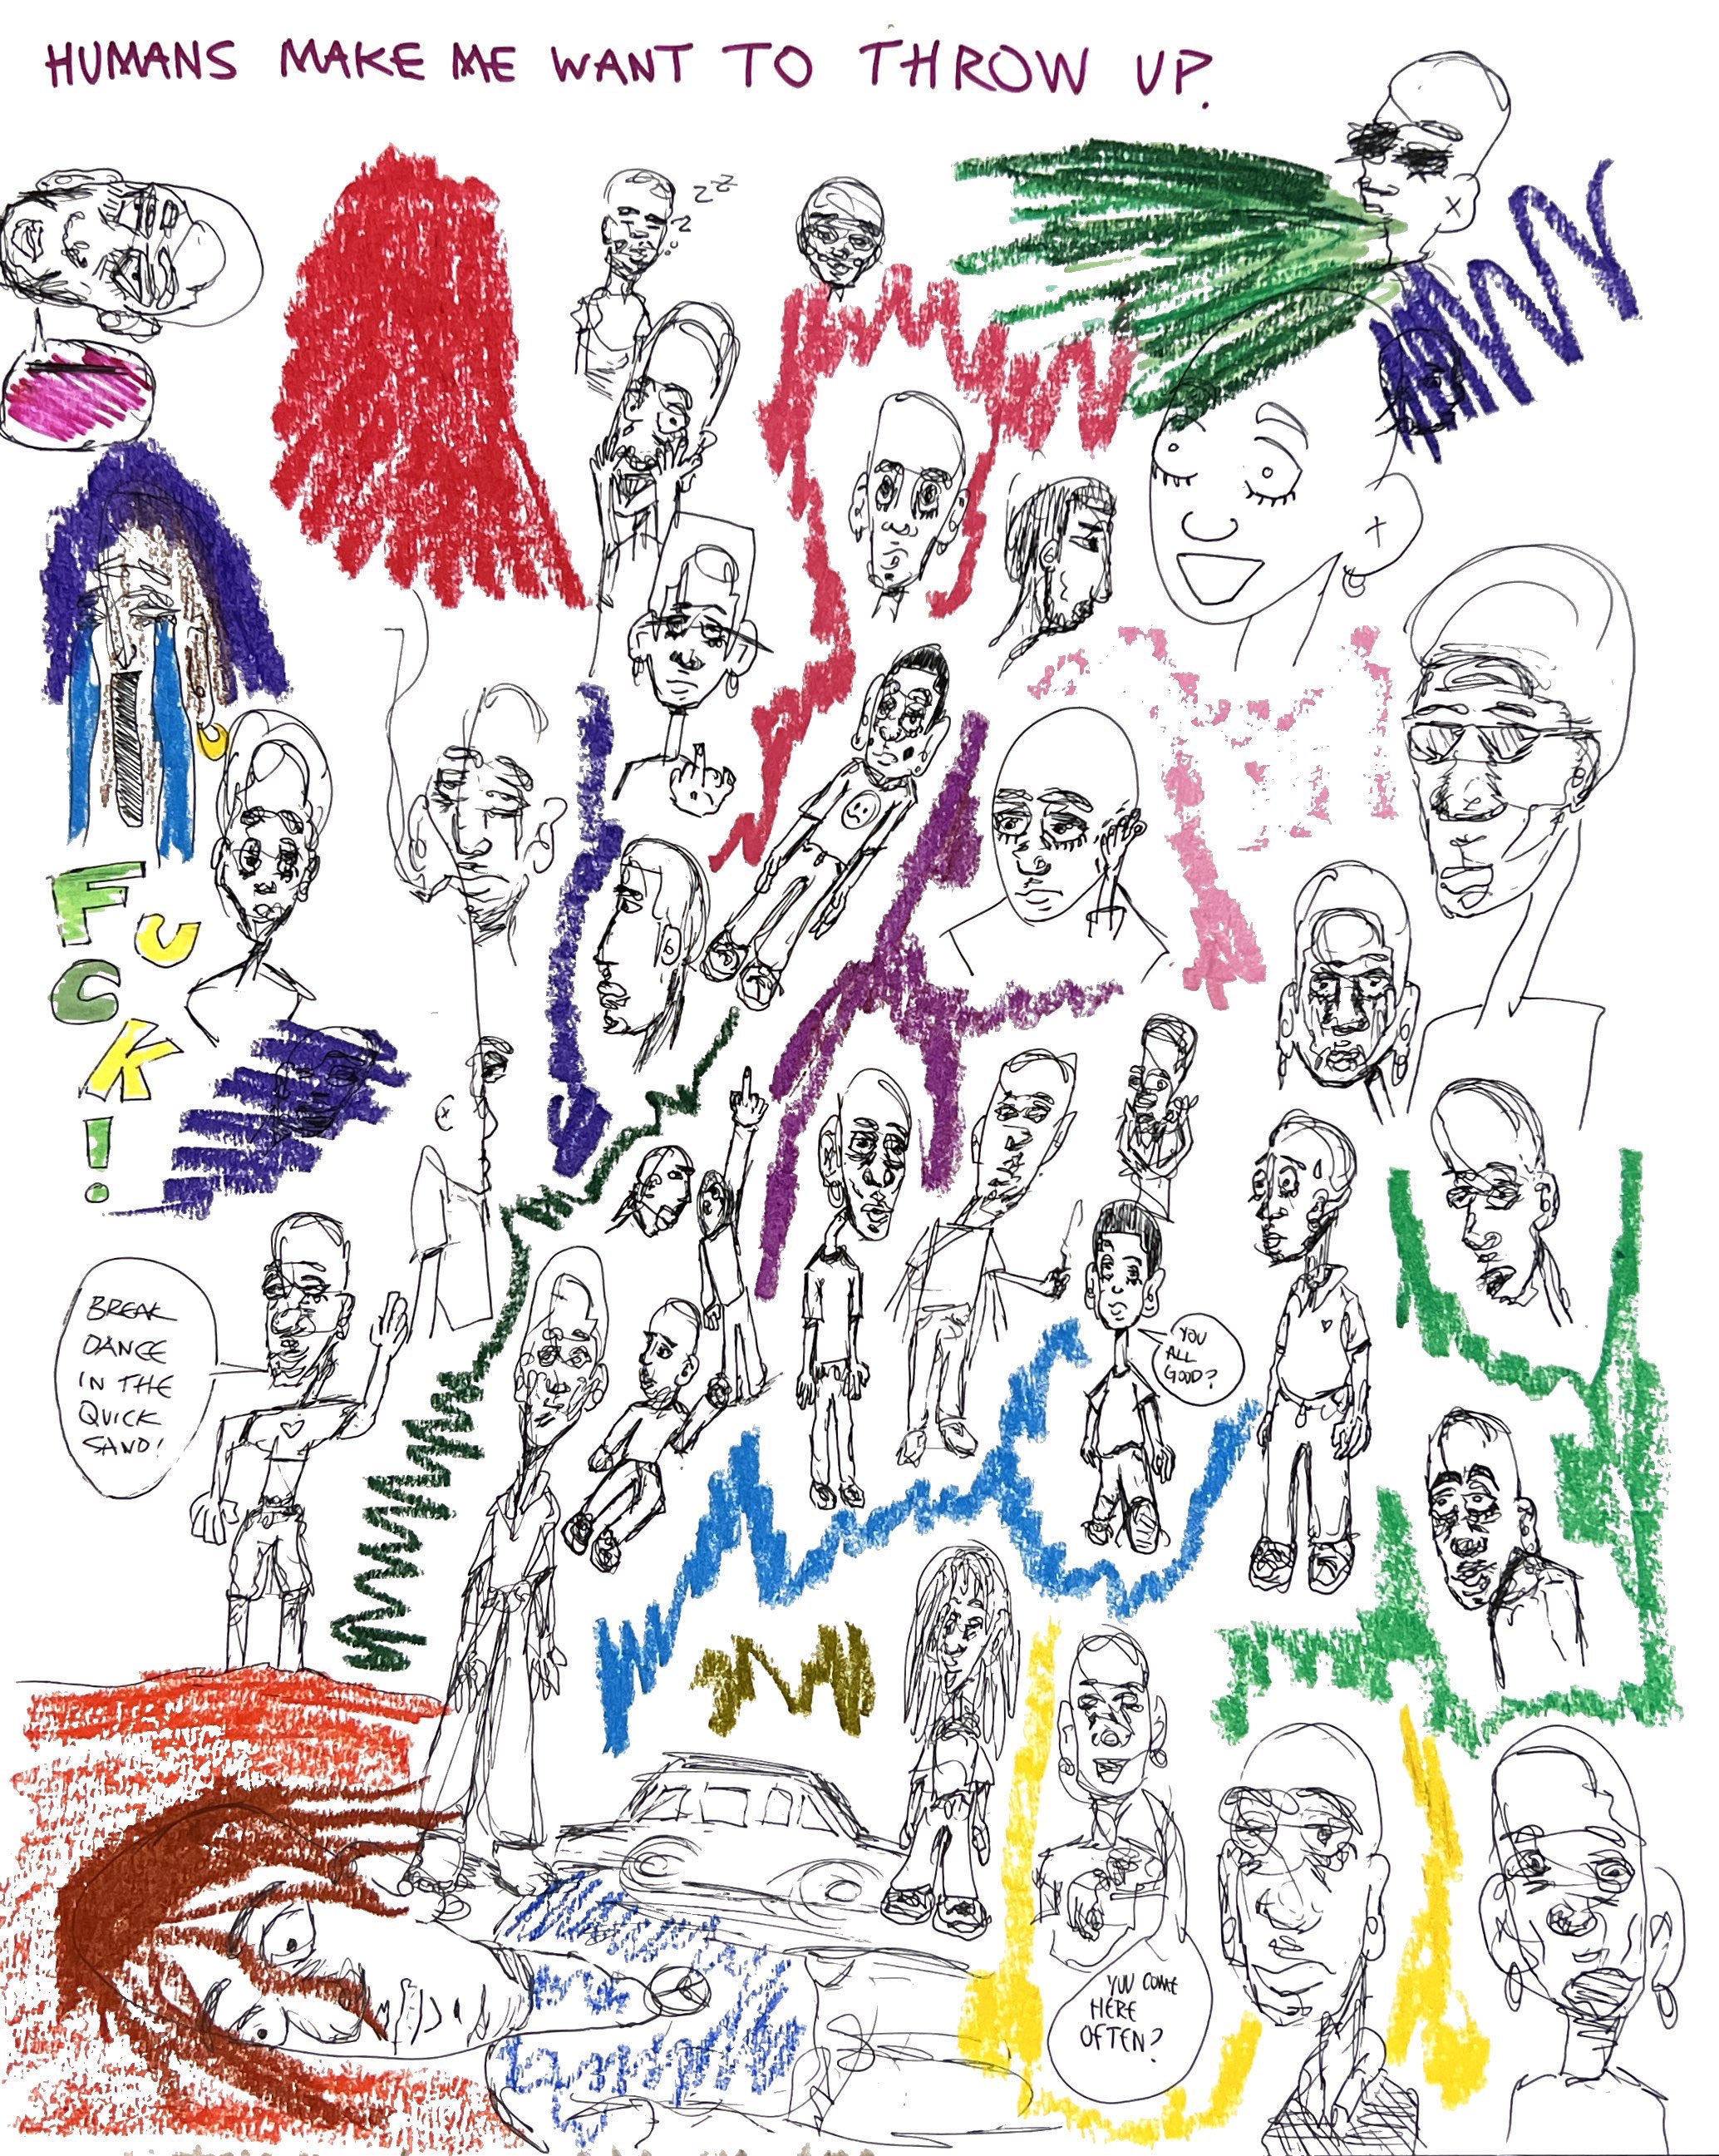 HUMANS MAKE ME WANT TO THROW UP.
z z z z
FUCK!
BREAK
DANCE
IN THE
QUICK
SAND!
YOU
ALL
GOOD?
YOU COME
HERE
OFTEN?